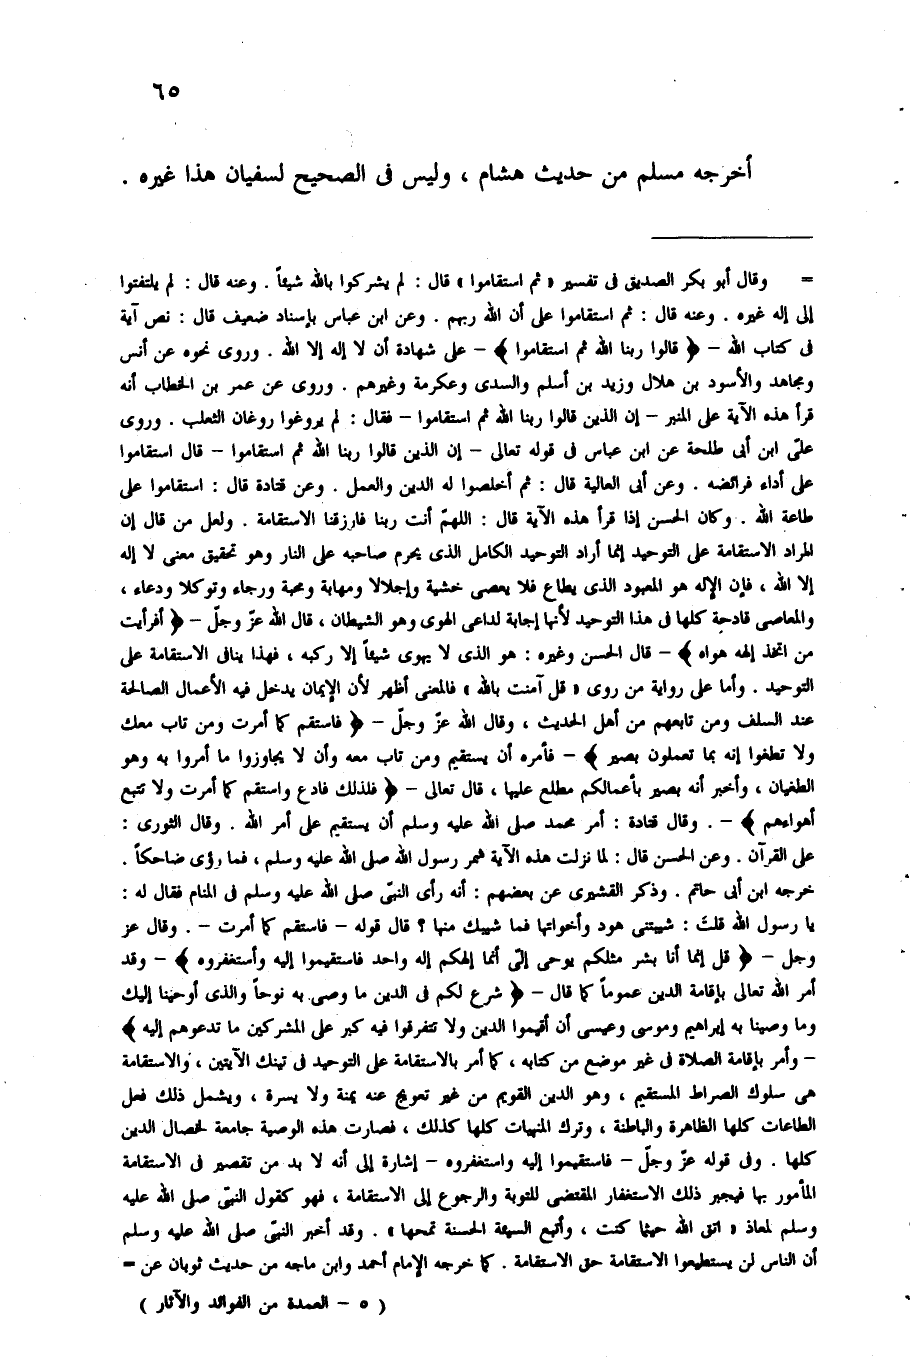 ٦٥
أخرجه مسلم من حديث هشام ، وليس فى الصحيح لسفيان هذا غيره .
= وقال أبو بكر الصديق فى تفسير « ثم استقاموا » قال : لم يشركوا بالله شيئاً . وعنه قال : لم يلتفتوا
إلى إله غيره . وعنه قال : ثم استقاموا على أن الله ربهم . وعن ابن عباس بإسناد ضعيف قال : نص آية
فى كتاب الله – ﴿ قالوا ربنا الله ثم استقاموا ﴾ – على شهادة أن لا إله إلا الله . وروى نحوه عن أنس
ومجاهد والأسود بن هلال وزيد بن أسلم والسدى وعكرمة وغيرهم . وروى عن عمر بن الخطاب أنه
قرأ هذه الآية على المنبر – إن الذين قالوا ربنا الله ثم استقاموا – فقال : لم يروغوا روغان الثعلب . وروى
علىّ ابن أبى طلحة عن ابن عباس فى قوله تعالى – إن الذين قالوا ربنا الله ثم استقاموا – قال استقاموا
على أداء فرائضه . وعن أبى العالية قال : ثم أخلصوا له الدين والعمل . وعن قتادة قال : استقاموا على
طاعة الله . وكان الحسن إذا قرأ هذه الآية قال : اللهمّ أنت ربنا فارزقنا الاستقامة . ولعل من قال إن
المراد الاستقامة على التوحيد إنما أراد التوحيد الكامل الذى يحرم صاحبه على النار وهو تحقيق معنى لا إله
إلا الله ، فإن الإله هو المعبود الذى يطاع فلا يعصى خشية وإجلالا ومهابة ومحبة ورجاء وتوكلا ودعاء ،
والمعاصى قادحة كلها فى هذا التوحيد لأنها إجابة لداعى الهوى وهو الشيطان ، قال الله عزّ وجلّ – ﴿ أفرأيت
من اتخذ إلهه هواه ﴾ – قال الحسن وغيره : هو الذى لا يهوى شيئاً إلا ركبه ، فهذا ينافى الاستقامة على
التوحيد . وأما على رواية من روى « قل آمنت بالله » فالمعنى أظهر لأن الإيمان يدخل فيه الأعمال الصالحة
عند السلف ومن تابعهم من أهل الحديث ، وقال الله عزّ وجلّ – ﴿ فاستقم كما أمرت ومن تاب معك
ولا تطغوا إنه بما تعملون بصير ﴾ – فأمره أن يستقيم ومن تاب معه وأن لا يجاوزوا ما أمروا به وهو
الطغيان ، وأخبر أنه بصير بأعمالكم مطلع عليها ، قال تعالى – ﴿ فلذلك فادع واستقم كما أمرت ولا تتبع
أهواءهم ﴾ – . وقال قتادة : أمر محمد صلى الله عليه وسلم أن يستقيم على أمر الله . وقال الثورى :
على القرآن . وعن الحسن قال : لما نزلت هذه الآية شمر رسول الله صلى الله عليه وسلم ، فما رؤى ضاحكاً .
خرجه ابن أبى حاتم . وذكر القشيرى عن بعضهم : أنه رأى النبىّ صلى الله عليه وسلم فى المنام فقال له :
يا رسول الله قلتَ : شيبتنى هود وأخواتها فما شيبك منها ؟ قال قوله – فاستقم كما أمرت – . وقال عز
وجل – ﴿ قل إنما أنا بشر مثلكم يوحى إلىّ أنما إلهكم إله واحد فاستقيموا إليه وأستغفروه ﴾ – وقد
أمر الله تعالى بإقامة الدين عموماً كما قال – ﴿ شرع لكم فى الدين ما وصى به نوحاً والذى أوحينا إليك
وما وصينا به إبراهيم وموسى وعيسى أن أقيموا الدين ولا تتفرقوا فيه كبر على المشركين ما تدعوهم إليه ﴾
– وأمر بإقامة الصلاة فى غير موضع من كتابه ، كما أمر بالاستقامة على التوحيد فى تينك الآيتين ، والاستقامة
هى سلوك الصراط المستقيم ، وهو الدين القويم من غير تعويج عنه يمنة ولا يسرة ، ويشمل ذلك فعل
الطاعات كلها الظاهرة والباطنة ، وترك المنهيات كلها كذلك ، فصارت هذه الوصية جامعة لخصال الدين
كلها . وفى قوله عزّ وجلّ – فاستقيموا إليه واستغفروه – إشارة إلى أنه لا بد من تقصير فى الاستقامة
المأمور بها فيجبر ذلك الاستغفار المقتضى للتوبة والرجوع إلى الاستقامة ، فهو كقول النبىّ صلى الله عليه
وسلم لمعاذ « اتق الله حيثما كنت ، وأتبع السيئة الحسنة تمحها » . وقد أخبر النبىّ صلى الله عليه وسلم
أن الناس لن يستطيعوا الاستقامة حق الاستقامة . كما خرجه الإمام أحمد وابن ماجه من حديث ثوبان عن =
( ٥ – العمدة من الفوائد والآثار )